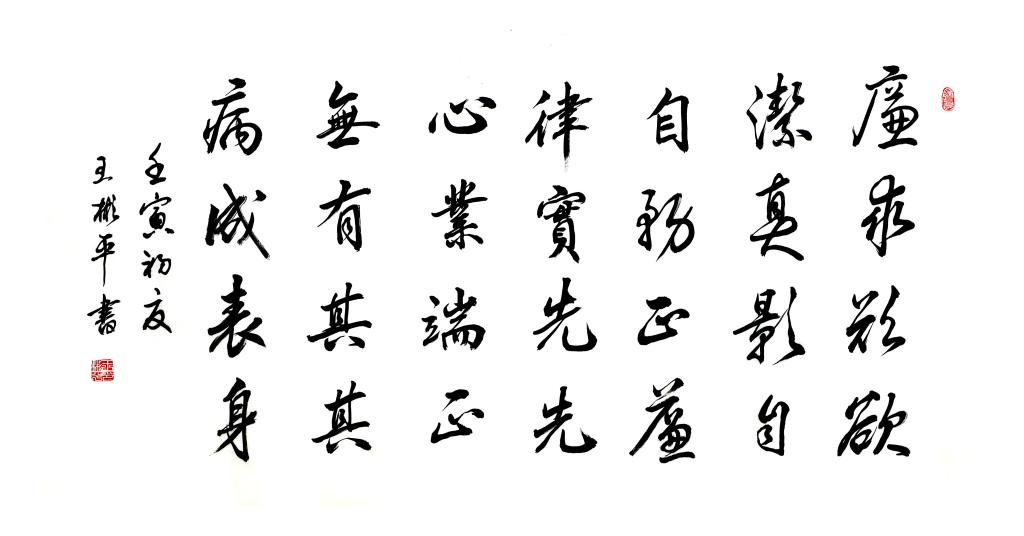 廉潔自律心無病
求真務實業有成
欲影正先端其表
欲自廉先正其身
壬寅初夏
王彬平書